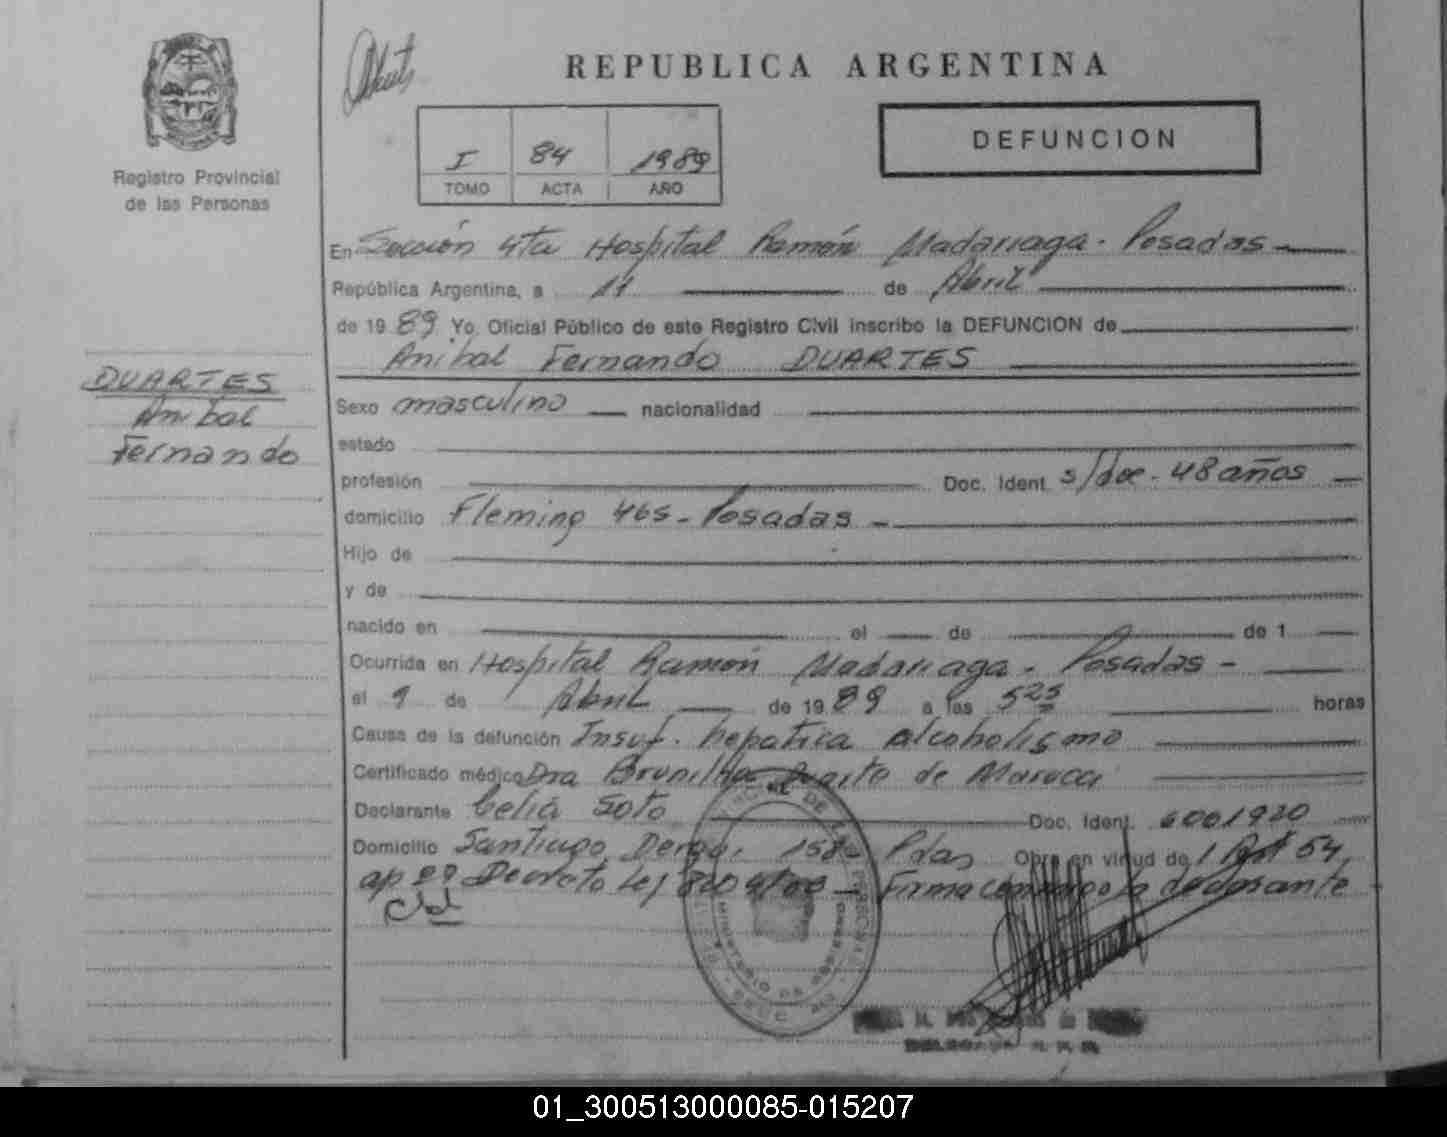 REPUBLICA ARGENTINA
DEFUNCION
Registro Provincial
de las Personas
I 84 1989
TOMO ACTA AÑO
En Sección 4ta Hospital Ramón Madariaga - Posadas
República Argentina, a 11 de Abril
de 1989 Yo, Oficial Público de este Registro Civil inscribo la DEFUNCION de
Anibal Fernando DUARTES
DUARTES
Anibal
Fernando
Sexo masculino nacionalidad
estado
profesión Doc. Ident. s/doc - 48 años
domicilio Fleming 465 - Posadas -
Hijo de
y de
nacido en el de de 1
Ocurrida en Hospital Ramón Madariaga - Posadas -
el 9 de Abril de 1989 a las 5 25 horas
Causa de la defunción Insuf. hepatica alcoholismo
Certificado médico Dra de Marucci
Declarante Celia Soto Doc. Ident. 6001920
Domicilio Santiago Pdas Obra en virtud de 54
Decreto Ley Firma la declarante
MINISTERIO DE GOBIERNO
01_300513000085-015207